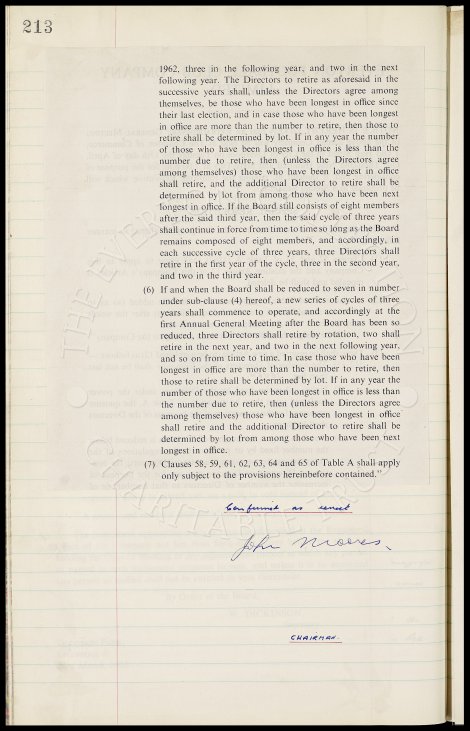 213
1962, three in the following year, and two in the next
following year. The Directors to retire as aforesaid in the
successive years shall, unless the Directors agree among
themselves, be those who have been longest in office since
their last election, and in case those who have been longest
in office are more than the number to retire, then those to
retire shall be determined by lot. If in any year the number
of those who have been longest in office is less than the
number due to retire, then (unless the Directors agree
among themselves) those who have been longest in office
shall retire, and the additional Director to retire shall be
determined by lot from among those who have been next
longest in office. If the Board still consists of eight members
after the said third year, then the said cycle of three years
shall continue in force from time to time so long as the Board
remains composed of eight members, and accordingly, in
each successive cycle of three years, three Directors shall
retire in the first year of the cycle, three in the second year,
and two in the third year.
(6) If and when the Board shall be reduced to seven in number
under sub-clause (4) hereof, a new series of cycles of three
years shall commence to operate, and accordingly at the
first Annual General Meeting after the Board has been so
reduced, three Directors shall retire by rotation, two shall
retire in the next year, and two in the next following year,
and so on from time to time. In case those who have been
longest in office are more than the number to retire, then
those to retire shall be determined by lot. If in any year the
number of those who have been longest in office is less than
the number due to retire, then (unless the Directors agree
among themselves) those who have been longest in office
shall retire and the additional Director to retire shall be
determined by lot from among those who have been next
longest in office.
(7) Clauses 58, 59, 61, 62, 63, 64 and 65 of Table A shall apply
only subject to the provisions hereinbefore contained."
Confirmed as correct
John Moores.
CHAIRMAN.
THE EVERTON
CHARITABLE TRUST